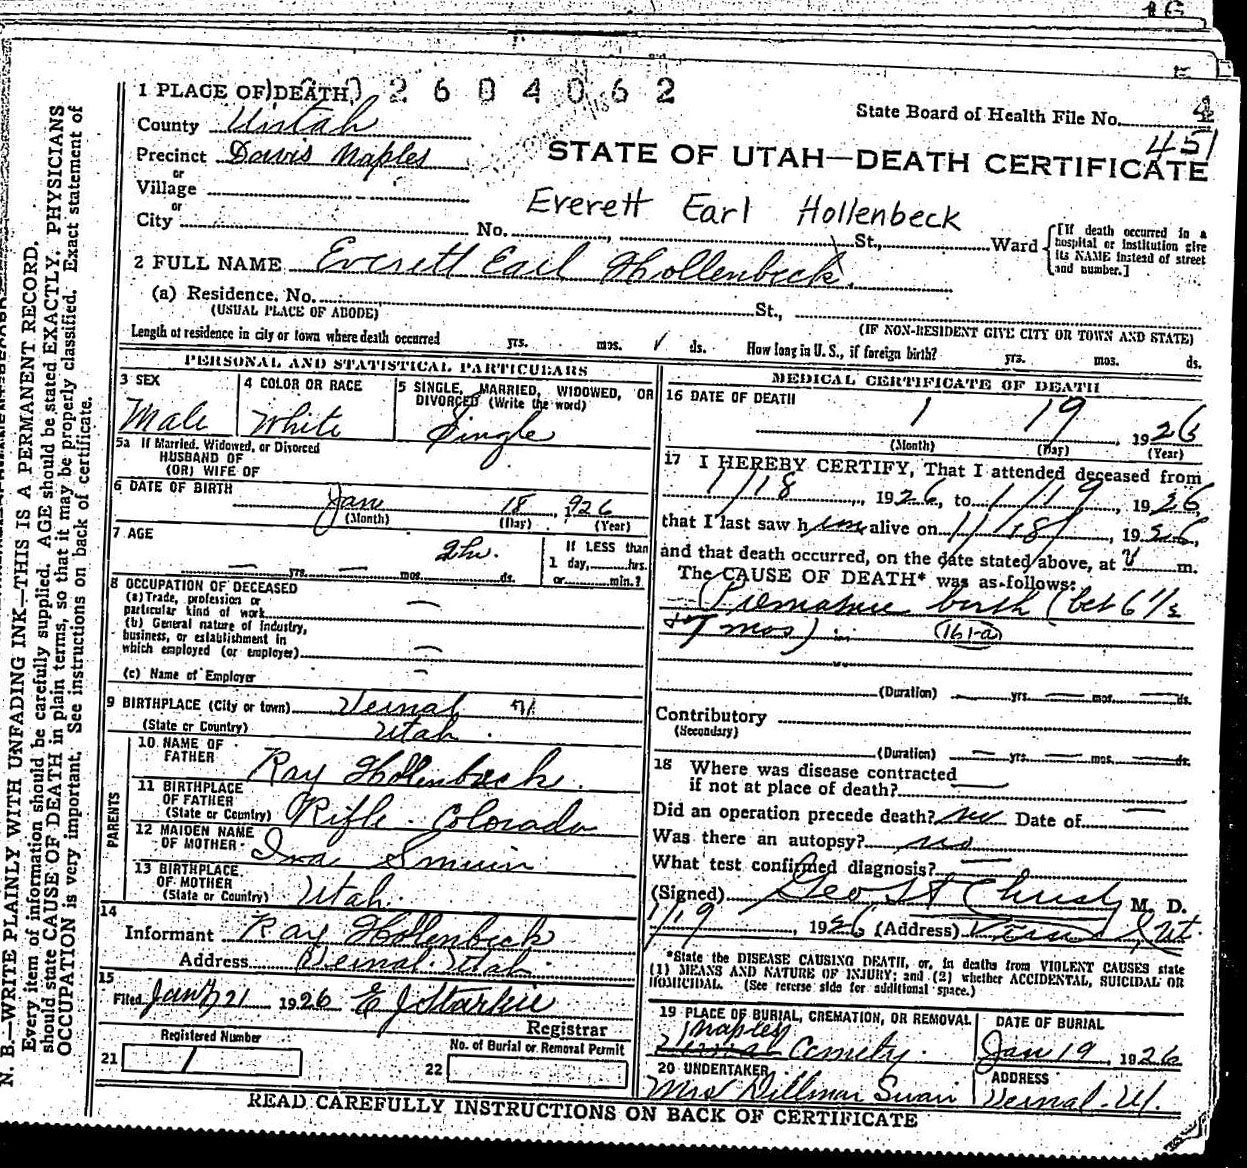 1 PLACE OF DEATH 2604062
State Board of Health File No. 4
451
County Uintah
STATE OF UTAH—DEATH CERTIFICATE
Precinct Davis Maples
or
Village
or
City
Everett Earl Hollenbeck
No. St., Ward
[If death occurred in a hospital or institution give its NAME instead of street and number.]
2 FULL NAME Everett Earl Hollenbeck.
(a) Residence. No. St.,
(USUAL PLACE OF ABODE)
(IF NON-RESIDENT GIVE CITY OR TOWN AND STATE)
Length of residence in city or town where death occurred yrs. mos. ds. How long in U. S., if foreign birth? yrs. mos. ds.
PERSONAL AND STATISTICAL PARTICULARS
3 SEX
Male
4 COLOR OR RACE
White
5 SINGLE, MARRIED, WIDOWED, OR DIVORCED (Write the word)
Single
5a If Married, Widowed, or Divorced
HUSBAND OF
(OR) WIFE OF
6 DATE OF BIRTH
Jan 18, 926
(Month) (Day) (Year)
7 AGE
— yrs. — mos. 2 hr. ds.
If LESS than
1 day, hrs.
or min.?
8 OCCUPATION OF DECEASED
(a) Trade, profession or
particular kind of work —
(b) General nature of Industry,
business, or establishment in
which employed (or employer) —
(c) Name of Employer —
9 BIRTHPLACE (City or town) Vernal
(State or Country) Utah.
PARENTS
10 NAME OF
FATHER Ray Hollenbeck.
11 BIRTHPLACE
OF FATHER
(State or Country) Rifle - Colorado
12 MAIDEN NAME
OF MOTHER Ina Smuin
13 BIRTHPLACE
OF MOTHER
(State or Country) Utah.
14
Informant Ray Hollenbeck
Address Vernal. Utah.
15
Filed Jan 21 1926 E J Starkie
Registrar
Registered Number
21 1
No. of Burial or Removal Permit
22
MEDICAL CERTIFICATE OF DEATH
16 DATE OF DEATH
1 19, 1926
(Month) (Day) (Year)
17 I HEREBY CERTIFY, That I attended deceased from
1/18, 1926, to 1/19, 1926,
that I last saw him alive on 1/18/, 1926,
and that death occurred, on the date stated above, at m.
The CAUSE OF DEATH* was as follows:
Premature birth (bet 6 1/2
+ 7 mos) 161-a
(Duration) — yrs. — mos. — ds.
Contributory
(Secondary)
(Duration) — yrs. — mos. — ds.
18 Where was disease contracted
if not at place of death? —
Did an operation precede death? no Date of —
Was there an autopsy? no
What test confirmed diagnosis? —
(Signed) Geo St Christ M. D.
1/19, 1926 (Address) Vernal, Ut.
*State the DISEASE CAUSING DEATH, or, in deaths from VIOLENT CAUSES state
(1) MEANS AND NATURE OF INJURY; and (2) whether ACCIDENTAL, SUICIDAL OR
HOMICIDAL. (See reverse side for additional space.)
19 PLACE OF BURIAL, CREMATION, OR REMOVAL
Maples
Vernal Cemetry.
DATE OF BURIAL
Jan 19, 1926
20 UNDERTAKER
Mrs Dillman Swain
ADDRESS
Vernal - Ut.
READ CAREFULLY INSTRUCTIONS ON BACK OF CERTIFICATE
N. B.—WRITE PLAINLY WITH UNFADING INK—THIS IS A PERMANENT RECORD.
Every item of information should be carefully supplied. AGE should be stated EXACTLY. PHYSICIANS
should state CAUSE OF DEATH in plain terms, so that it may be properly classified. Exact statement of
OCCUPATION is very important. See instructions on back of certificate.